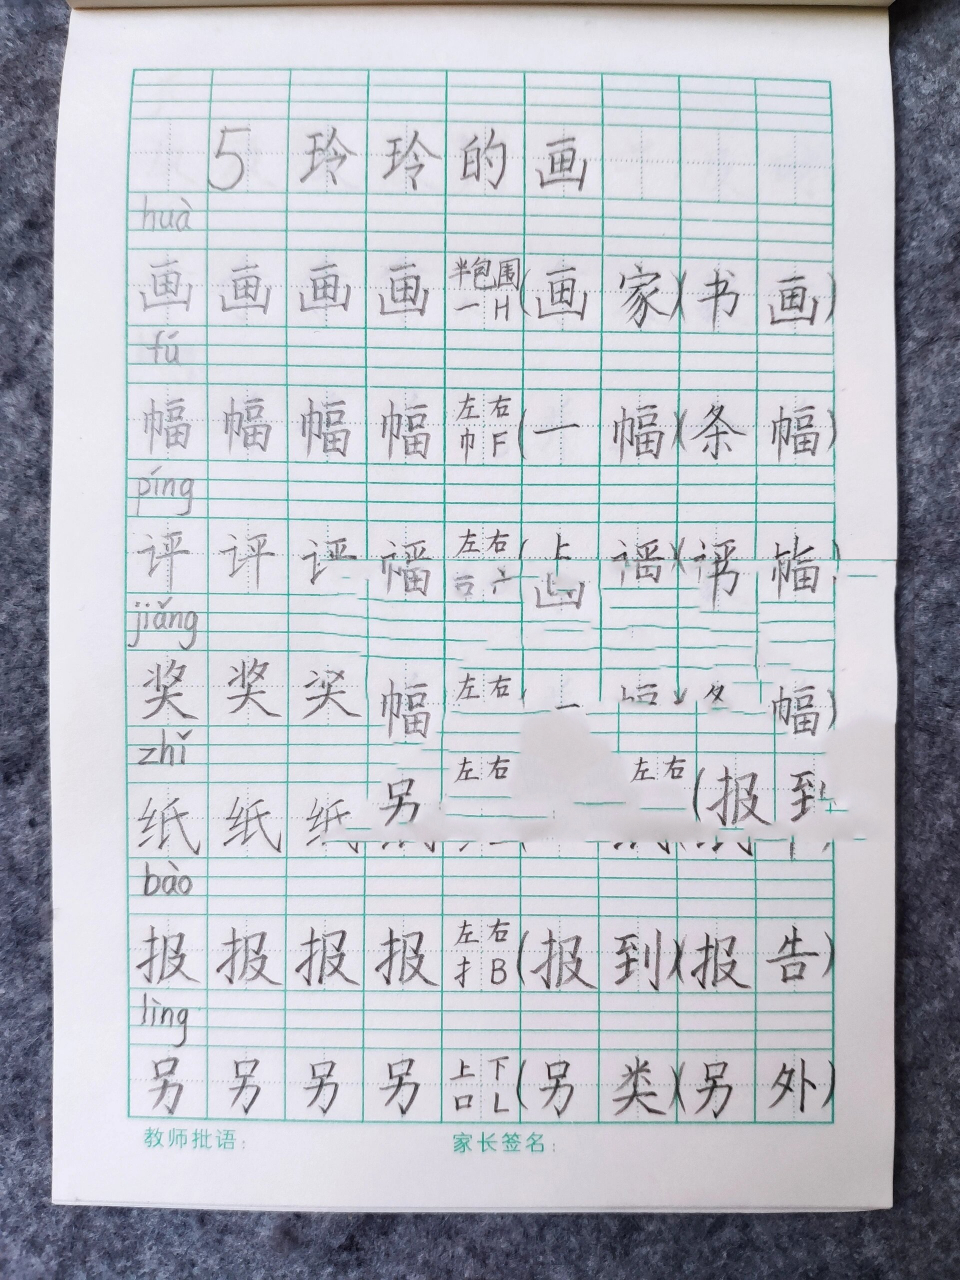 5 玲玲的画
huà
画 画 画 画 半包围 一 H (画家)(书画)
fú
幅 幅 幅 幅 左右 巾 F (一幅)(条幅)
píng
评 评 评 左右
jiǎng
奖 奖 奖 幅 左右 一 幅)
zhǐ
纸 纸 纸 另 左右 左右 (报到
bào
报 报 报 报 左右 扌 B (报到)(报告)
lìng
另 另 另 另 上下 口 L (另类)(另外)
教师批语: 家长签名: